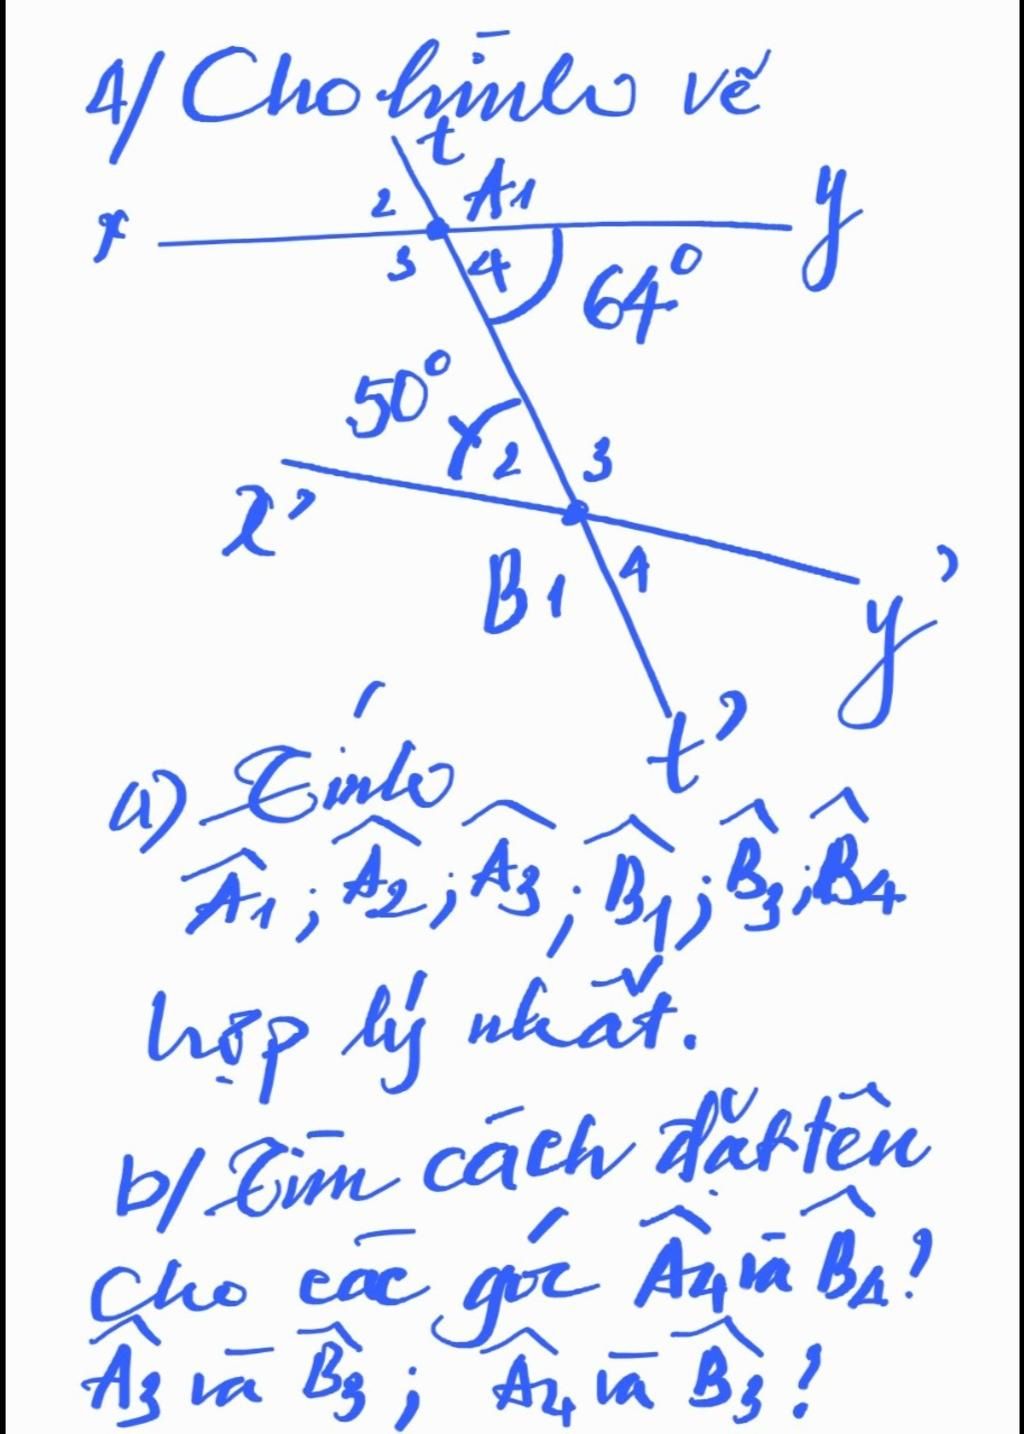 4/ Cho hình vẽ
t
x 2 A1 y
3 4 64°
50°
2 3
x'
B1 4 y'
t'
a) Tính
Â1; Â2; Â3; B̂1; B̂3; B̂4
hợp lý nhất.
b/ Tìm cách đặt tên
cho các góc Â4 và B̂4?
Â3 và B̂3; Â4 và B̂3?